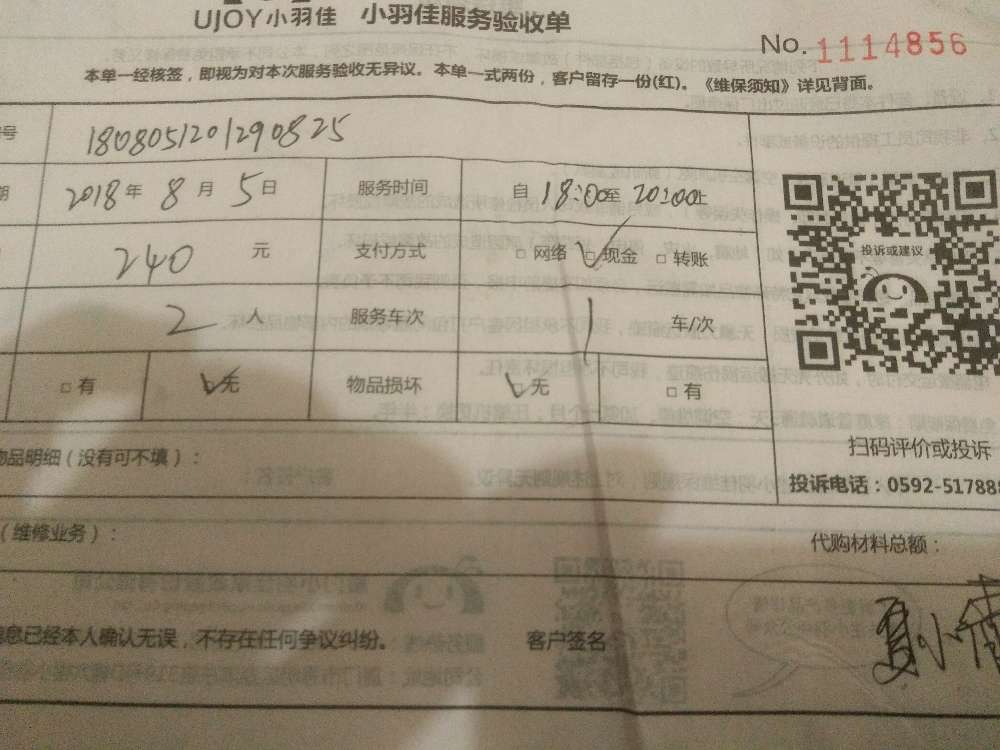 UJOY小羽佳 小羽佳服务验收单
No. 1114856
本单一经核签，即视为对本次服务验收无异议。本单一式两份，客户留存一份(红)。《维保须知》详见背面。
号 1808051201290825
期 2018年8月5日 服务时间 自18:00至20:00止
240 元 支付方式 □网络 ☑现金 □转账
投诉或建议
2 人 服务车次 1 车/次
□有 ☑无 物品损坏 ☑无 □有
扫码评价或投诉
物品明细（没有可不填）：
投诉电话：0592-517888
（维修业务）：
代购材料总额：
信息已经本人确认无误，不存在任何争议纠纷。 客户签名 夏小